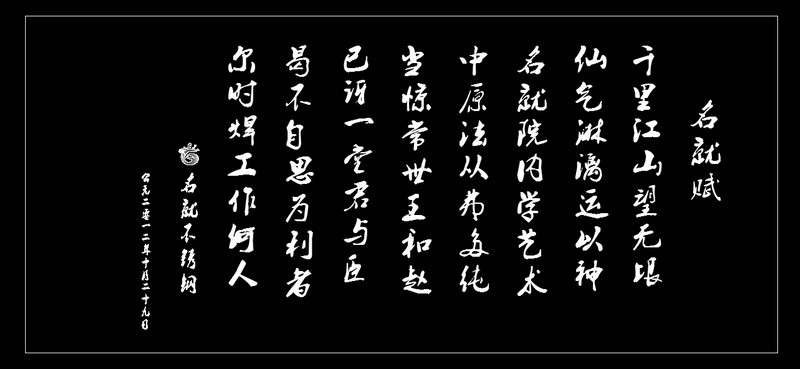 名就赋
千里江山望无垠
仙气淋漓运以神
名就院内学艺术
中原法从弗多纯
当惊常世王和赵
已讶一堂君与臣
曷不自思为利者
尔时焊工作何人
名就不锈钢
公元二零一二年十月二十九日